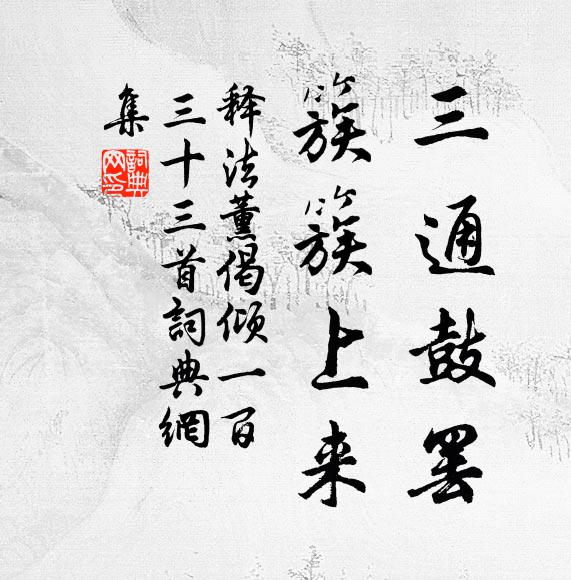 三通鼓罢
簇簇上来
释法薰偈倾一百
三十三首詞典網
集
詞典网印